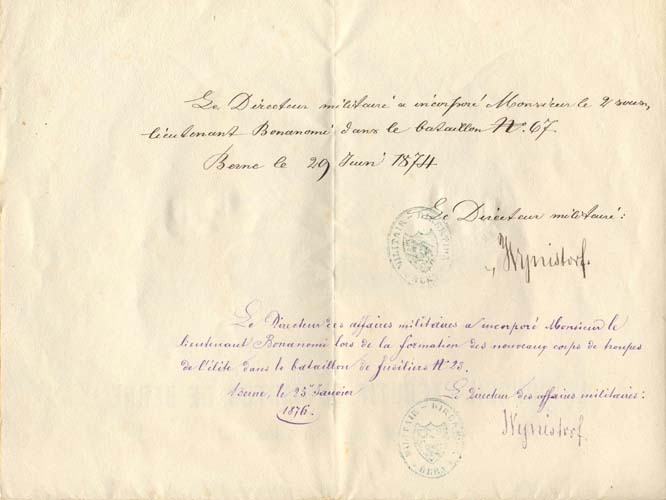 Le Directeur militaire a incorporé Monsieur le 2 sous,
lieutenant Bonanomi dans le bataillon No. 67.
Berne le 29 Juin 1874
Le Directeur militaire:
MILITAIR - DIRECTION
BERN
Wynistorf.
Le Directeur des affaires militaires a incorporé Monsieur le
lieutenant Bonanomi lors de la formation des nouveaux corps de troupes
de l'élite dans le bataillon de fusiliers No 23.
Berne, le 25 Janvier
1876.
Le Directeur des affaires militaires:
MILITAIR - DIRECTION
BERN
Wynistorf.